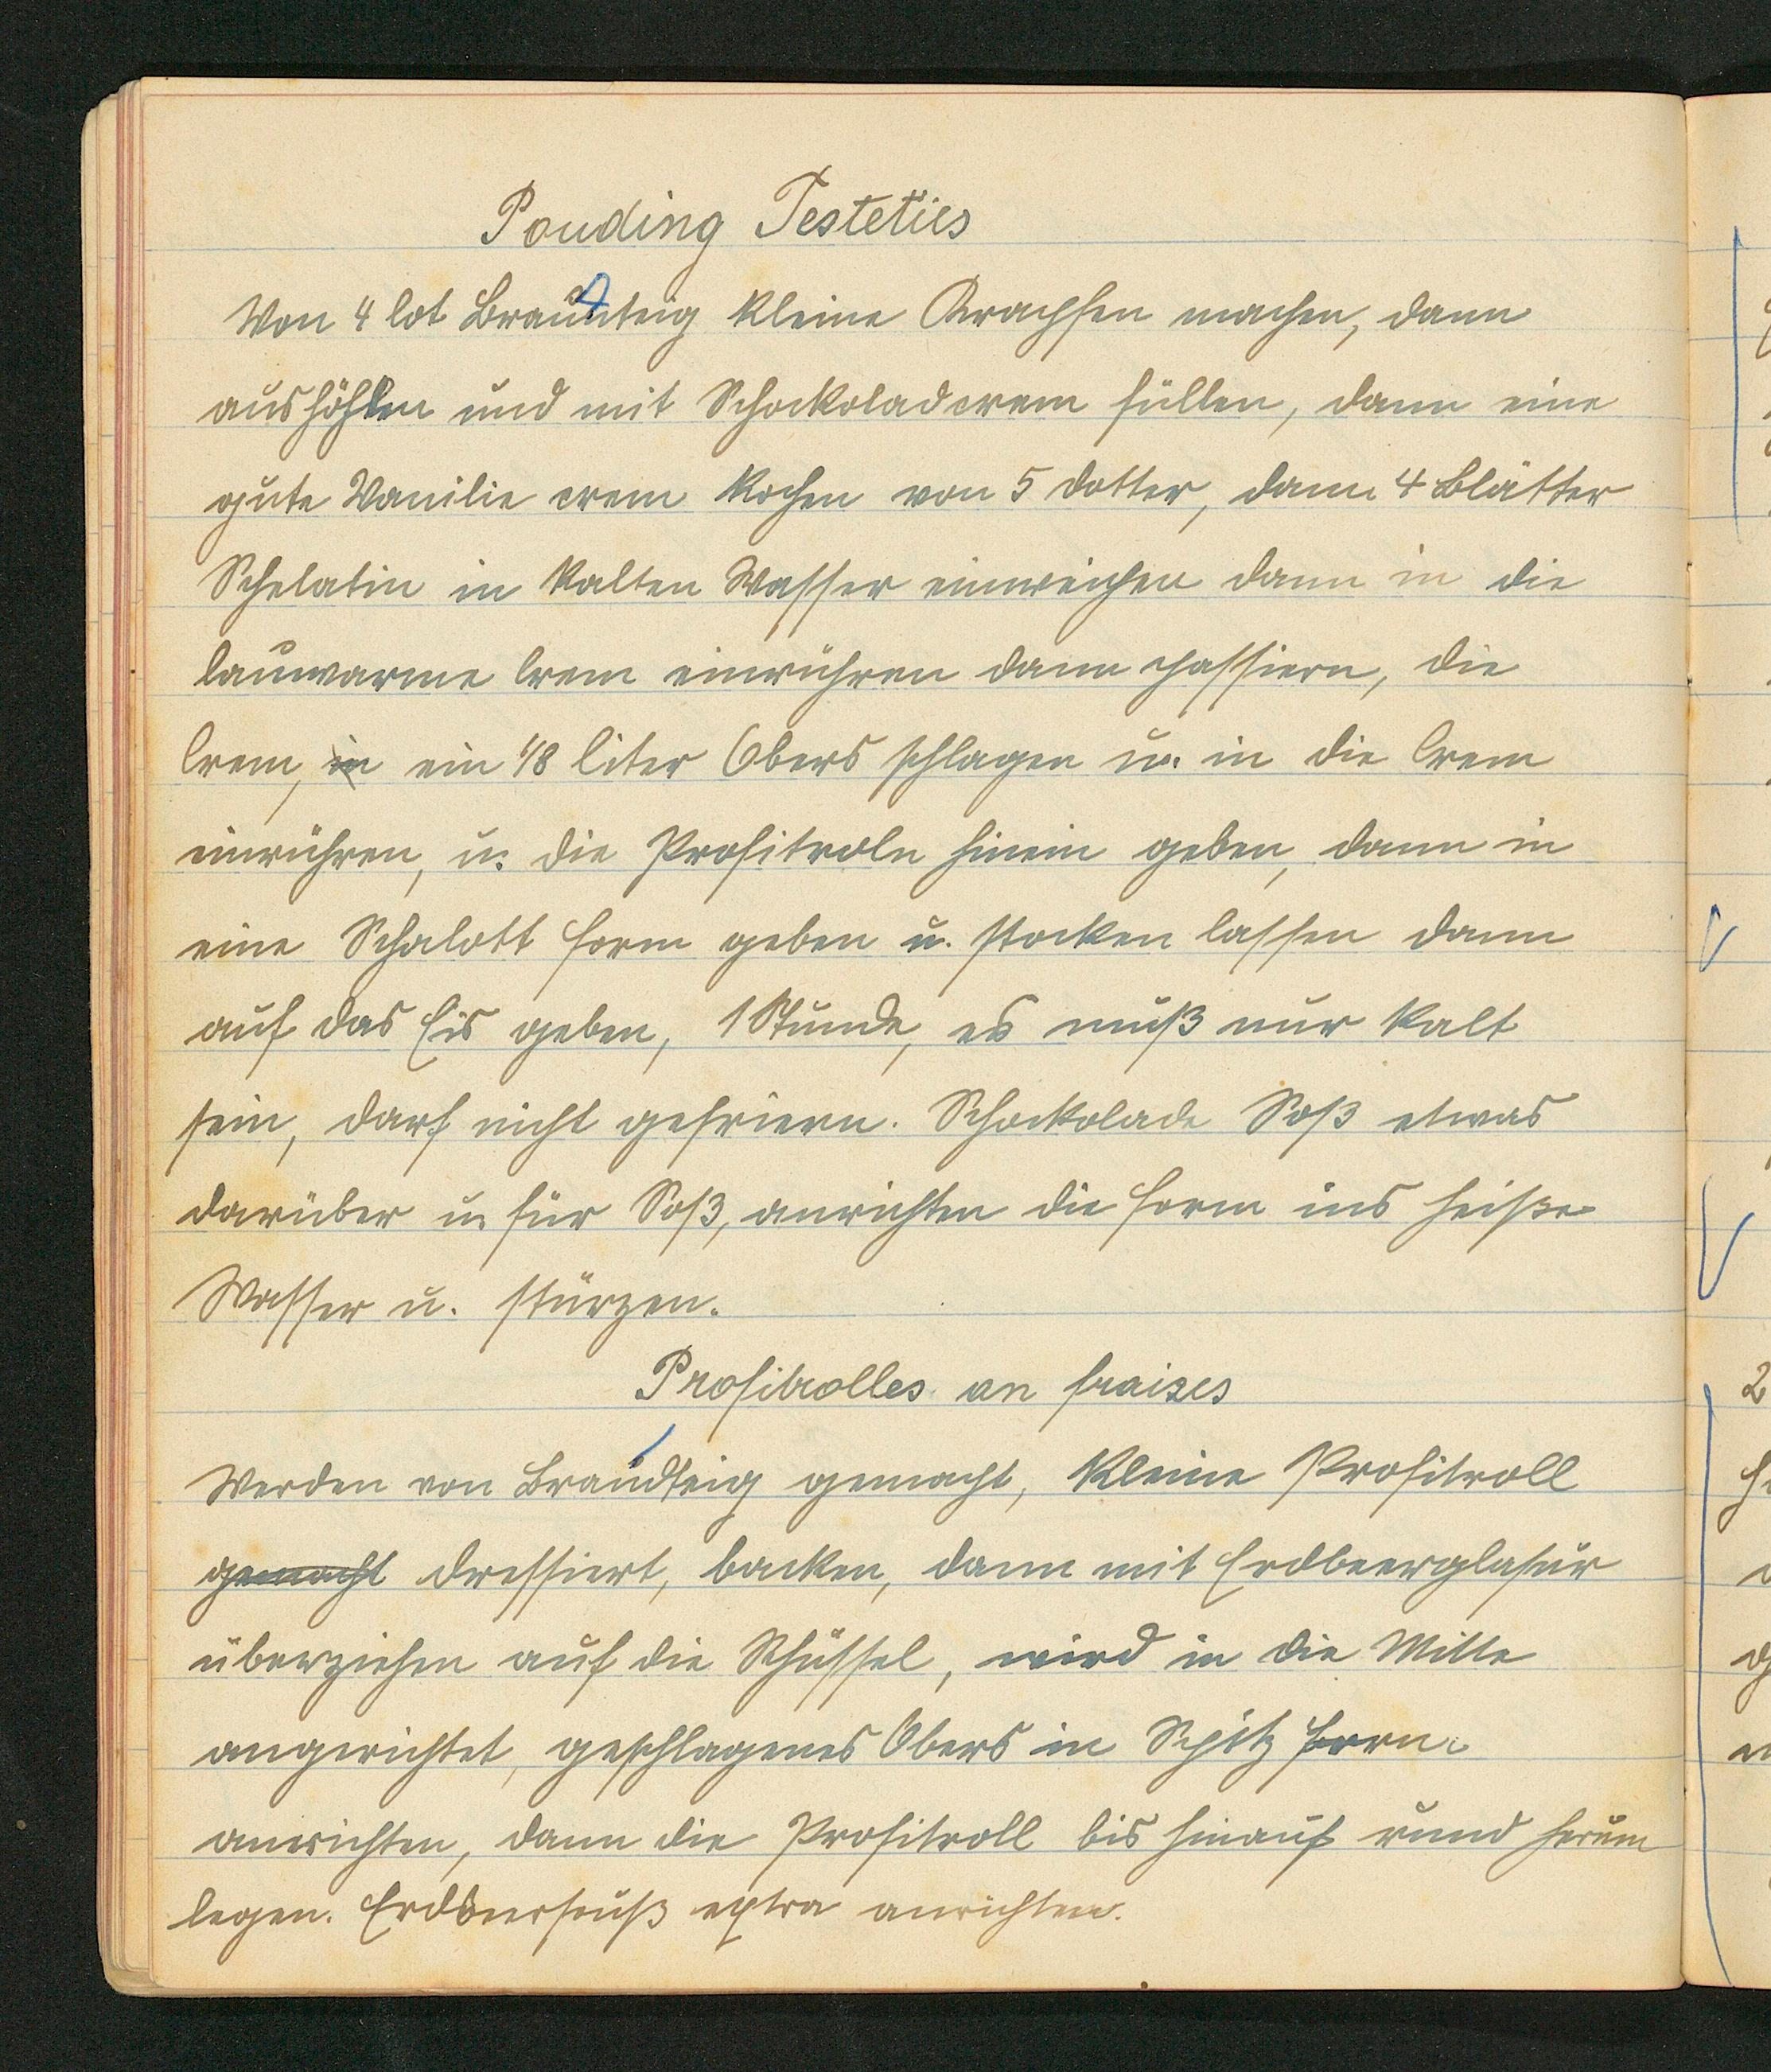 Pouding Testeties
Von 4 lot Brandteig kleine Krapfen machen, dann
aushöhlen und mit Schockoladcrem füllen, dann eine
gute Vanilie crem kochen von 5 Dotter, dann 4 Blätter
Schelatin in kalten Wasser einweichen dann in die
lauwarme Crem einrühren dann passiern, die
Crem, in ein 1/8 liter Obers schlagen u. in die Crem
einrühren, u. die Profitroln hinein geben, dann in
eine Schalott form geben u. stocken lassen dann
auf das Eis geben, 1 Stunde, es muß nur kalt
sein, darf nicht gefriern. Schockolade Soß etwas
darüber u. für Soß, anrichten die form ins heiße
Wasser u. stürzen.
Profitrolles an fraises
Werden von Brandteig gemacht, kleine Profitroll
gemacht dressiert, backen, dann mit Erdbeerglasur
überziehen auf die Schüssel, wird in die Mitte
angerichtet, geschlagenes Obers in Spitz form
anrichten, dann die Profitroll bis hinauf rund herum
legen. Erdbeersauß extra anrichten.
2